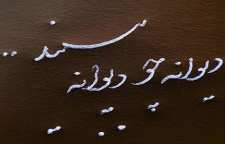 دیوانه چو دیوانه ببیند ..